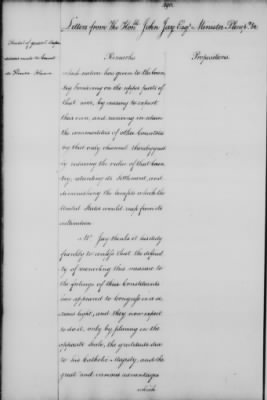 Letters from The Honble John Jay Esqr Minister Plenp &c
Remarks
Propositions.
which nation has given to the coun-
try bordering on the upper parts of
that river, by ceasing to export
this corn, and receiving in return
the commodities of other Countries
by that only channel thereby great
ly injuring the value of that coun-
try, retarding its Settlement, and
diminishing the benefits which the
United States would reap from its
cultivation
Mr. Jay thinks it his duty
frankly to confess that the difficul-
ty of reconciling this measure to
the feelings of their Constituents
has appeared to Congress in a se-
rious light, and they now expect
to do it, only by placing in the
opposite scale, the gratitude due
to his Catholic Majesty, and the
great and various advantages
which